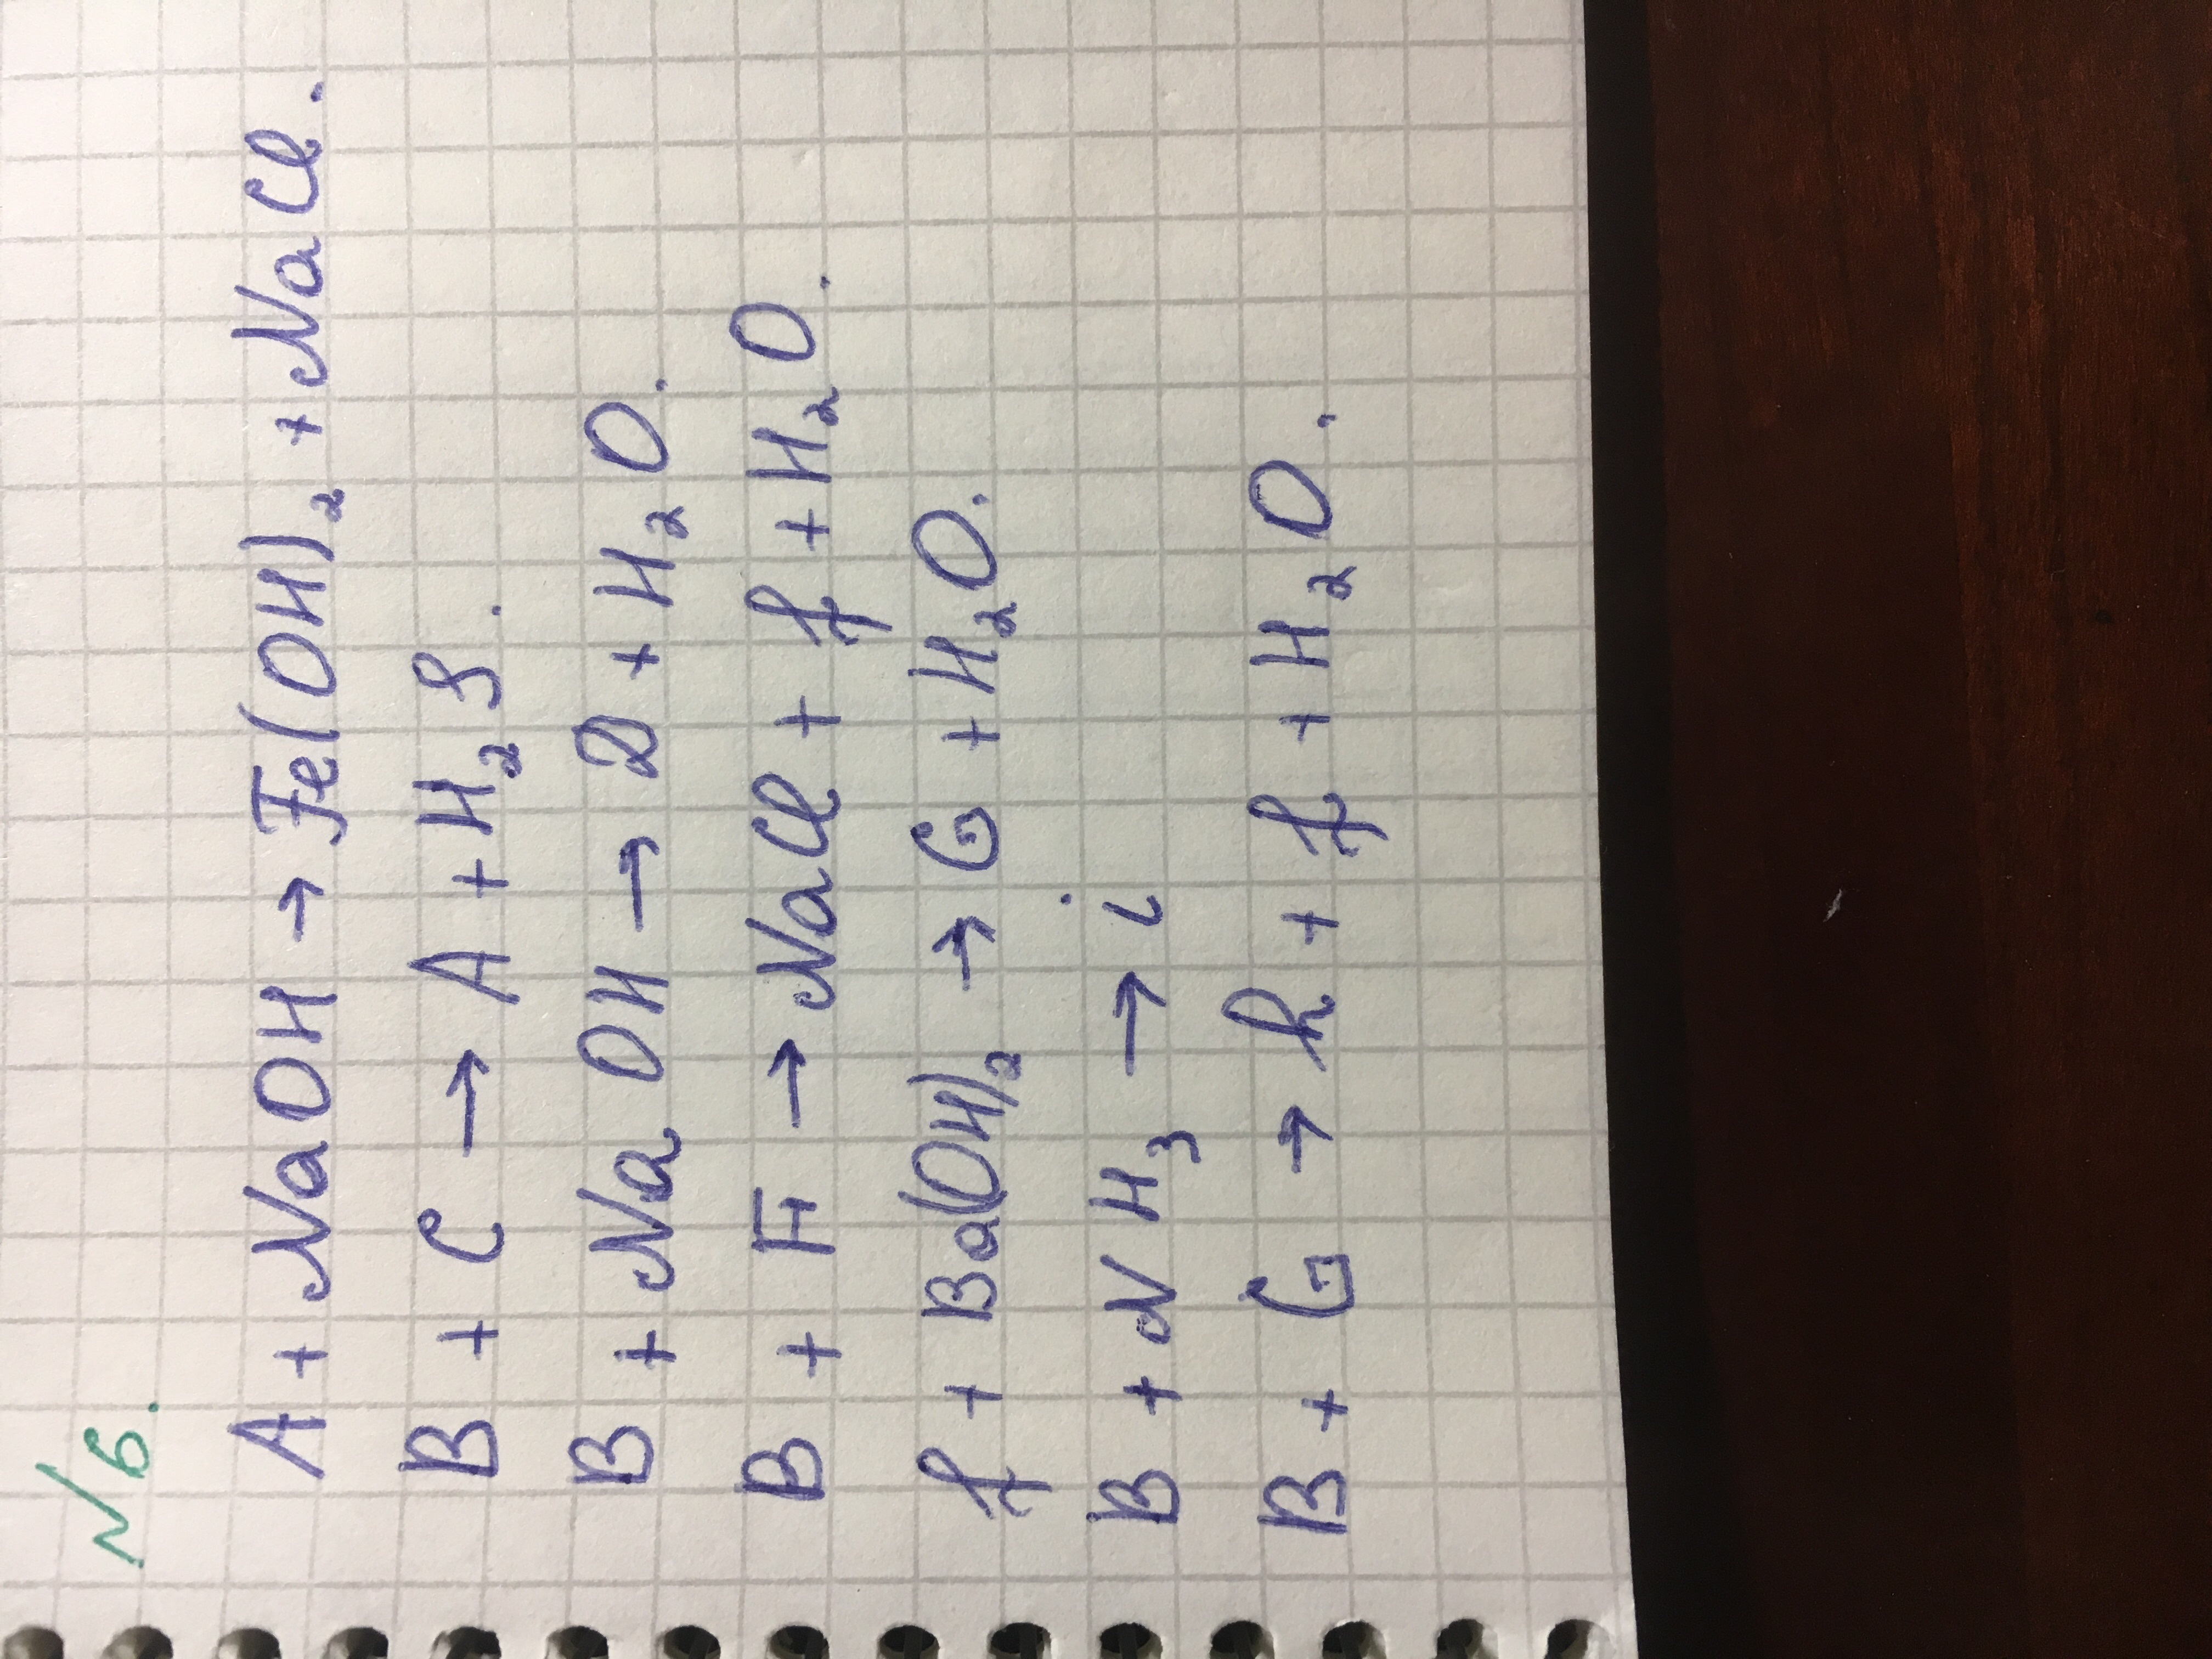 N6.
A + NaOH → Fe(OH)₂ + NaCl.
B + C → A + H₂S.
B + NaOH → D + H₂O.
B + F → NaCl + f + H₂O.
f + Ba(OH)₂ → G + H₂O.
B + NH₃ → i
B + G → h + f + H₂O.